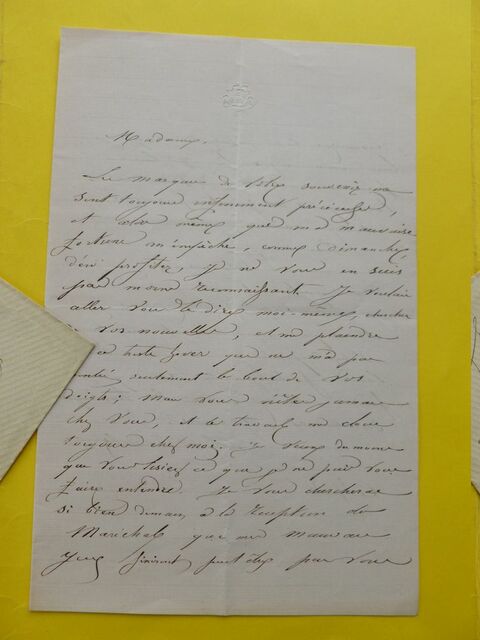 Madame,
Les marques de votre souvenir me
sont toujours infiniment précieuses,
et alors même que ma mauvaise
fortune m'empêche, comme Dimanche,
d'en profiter, je ne vous en suis
pas moins reconnaissant. Je voulais
aller vous le dire moi-même, chercher
de vos nouvelles, et me plaindre
ce triste hiver que ne m'a pas
seulement le bout de vos
doigts; Mais vous n'êtes jamais
chez vous, et le travail me cloue
toujours chez moi. Je veux du moins
que vous lisiez ce que je ne puis vous
faire entendre. Je vous chercherai
si bien demain, à la réception du
Maréchal que mes mauvais
yeux finiront peut-être par vous